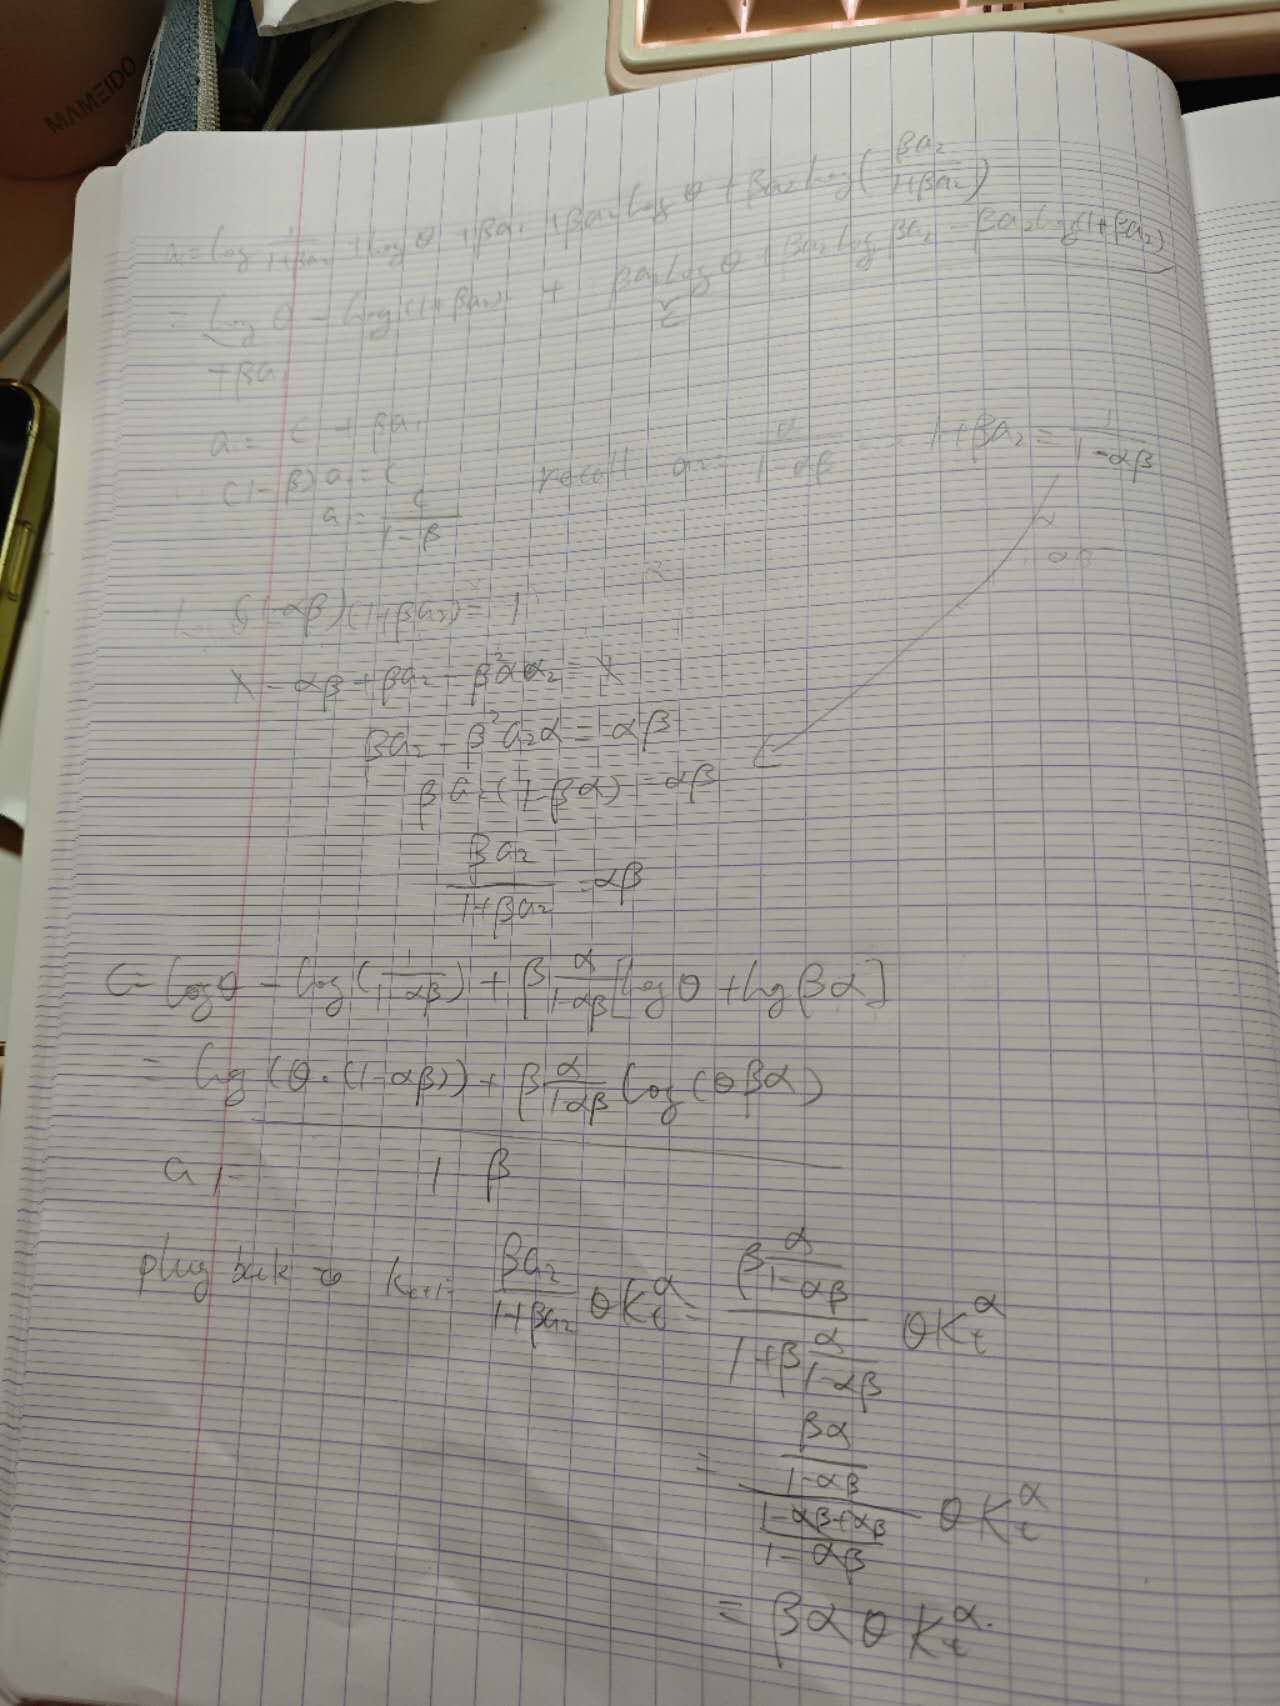 MAMEIDO
a₁ = log 1/(1+βa₂) + log θ + βa₁ + βa₂ log θ + βa₂ log (βa₂/(1+βa₂))
= log θ - log (1+βa₂) + βa₂ log θ + βa₂ log βa₂ - βa₂ log(1+βa₂)
+βa₁
a₁ = C + βa₁
(1-β) a₁ = C recall a₂ = α/(1-αβ) 1+βa₂ = 1/(1-αβ)
a₁ = C/(1-β)
(1-αβ)(1+βa₂) = 1
1 - αβ + βa₂ - β²αa₂ = 1
βa₂ - β²a₂α = αβ
βa₂(1-βα) = αβ
βa₂/(1+βa₂) = αβ
C = log θ - log (1/(1-αβ)) + β α/(1-αβ) [log θ + log βα]
= log (θ·(1-αβ)) + β α/(1-αβ) log (θβα)
a₁ = 1-β
plug back to Kₜ₊₁ = βa₂/(1+βa₂) θKₜ^α = (β α/(1-αβ))/(1+β α/(1-αβ)) θKₜ^α
= (βα/(1-αβ))/((1-αβ+αβ)/(1-αβ)) θKₜ^α
= βαθKₜ^α.